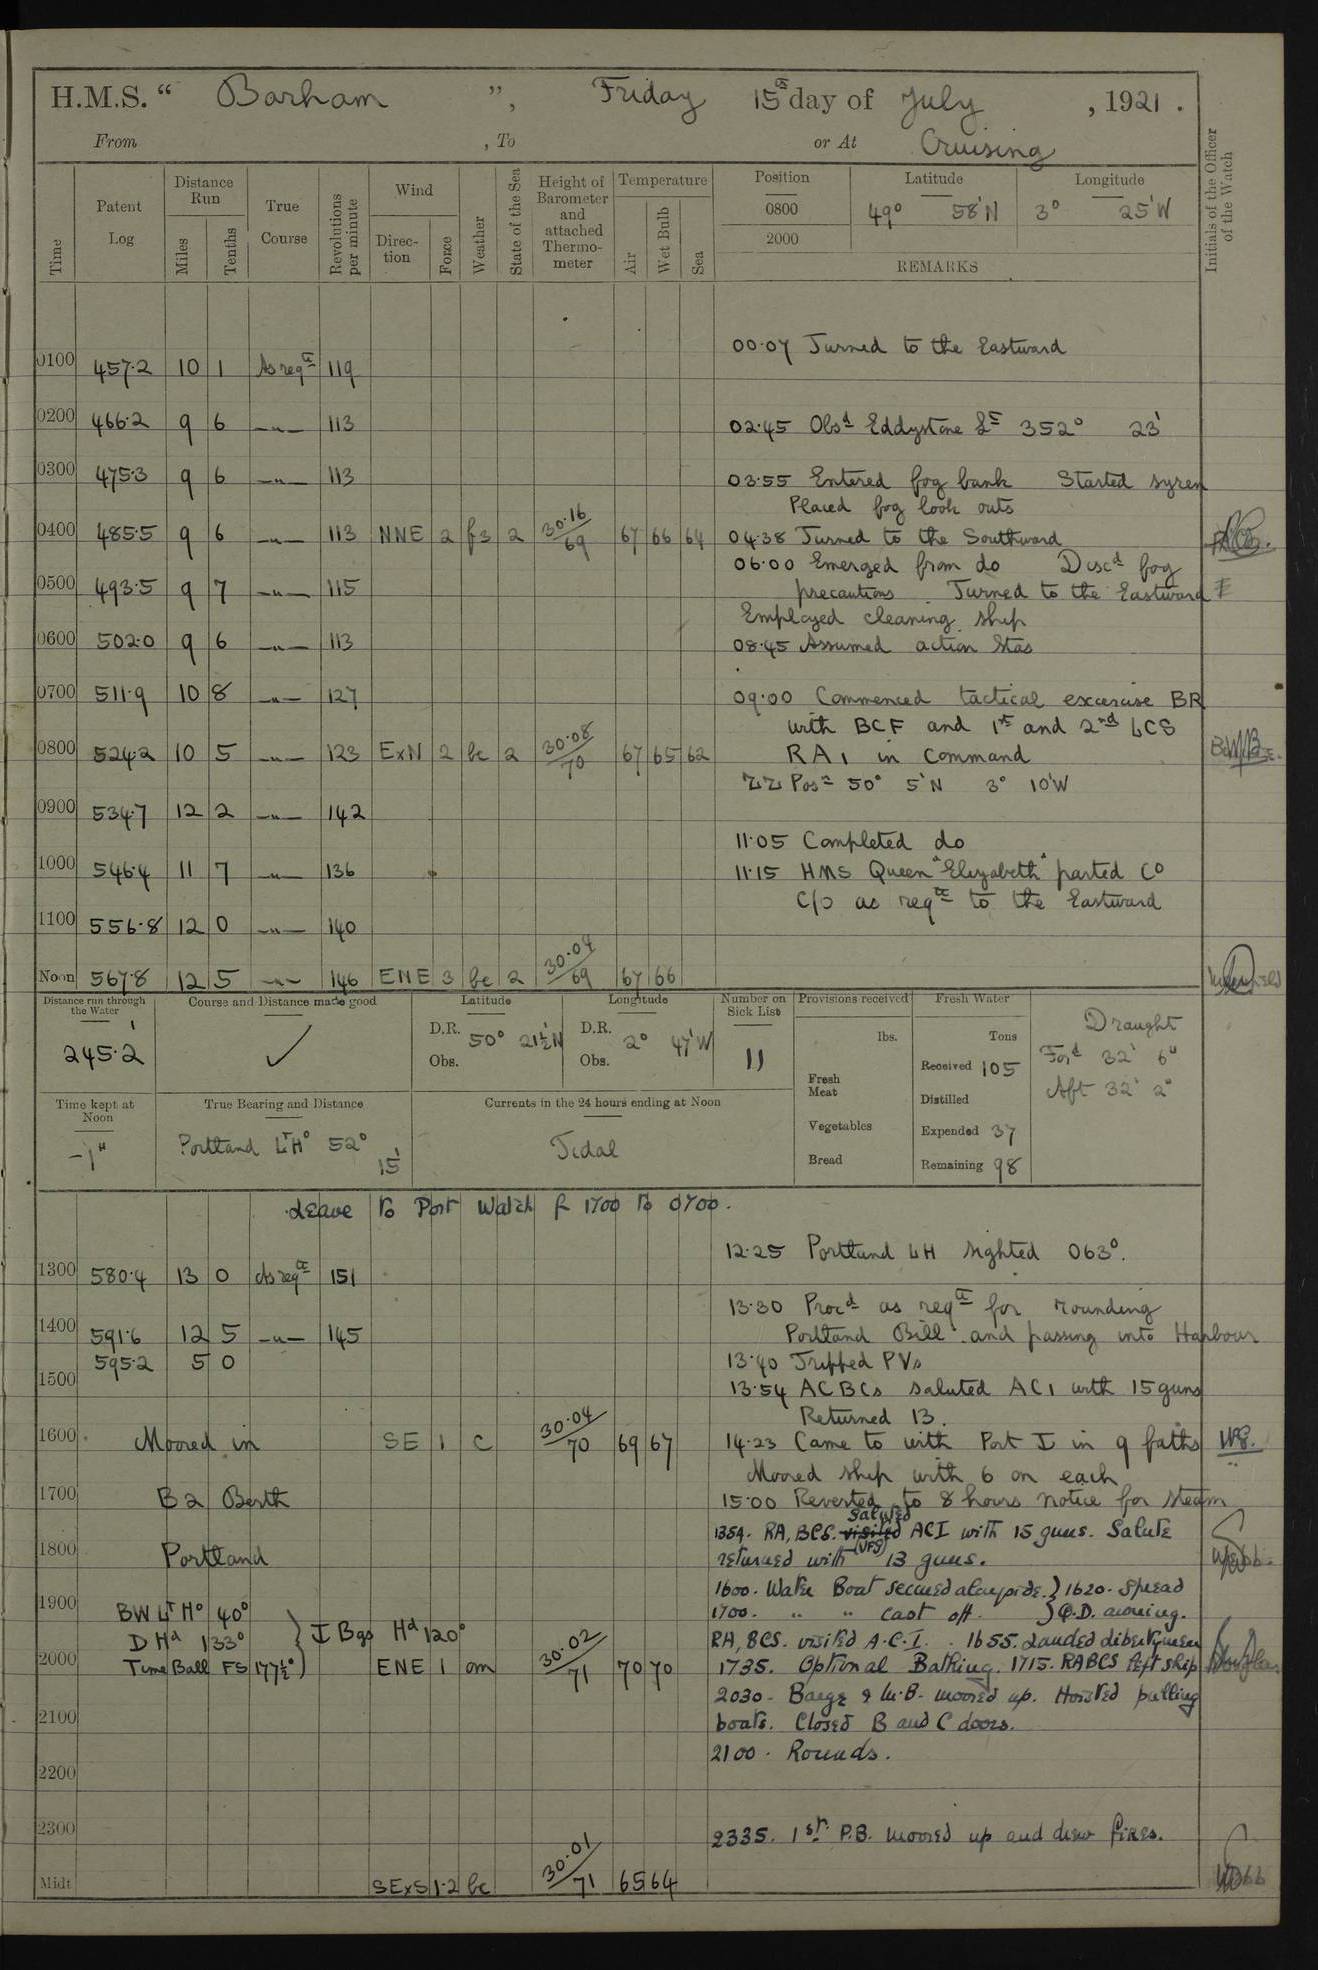 H.M.S. “ Barham ”, Friday 15th day of July , 1921 .
From , To or At Cruising
Time Patent Log Distance Run Miles Tenths True Course Revolutions per minute Wind Direction Force Weather State of the Sea Height of Barometer and attached Thermometer Temperature Air Wet Bulb Sea Position Latitude Longitude Initials of the Officer of the Watch
0800 49° 58'N 3° 25'W
2000
REMARKS
00·07 Turned to the Eastward
0100 457·2 10 1 As reqte 119
0200 466·2 9 6 —"— 113 02·45 Obsd Eddystone Lt 352° 23'
0300 475·3 9 6 —"— 113 03·55 Entered fog bank Started syren
Placed fog look outs
0400 485·5 9 6 —"— 113 NNE 2 f3 2 30·16/69 67 66 64 04·38 Turned to the Southward
06·00 Emerged from do Discd fog
0500 493·5 9 7 —"— 115 precautions. Turned to the Eastward
Employed cleaning ship
0600 502·0 9 6 —"— 113 08·45 Assumed action Stas
0700 511·9 10 8 —"— 127 09·00 Commenced tactical excersise BR
with BCF and 1st and 2nd LCS
0800 524·2 10 5 —"— 123 ExN 2 bc 2 30·08/70 67 65 62 RA1 in Command
ZZ Posn 50° 5'N 3° 10'W
0900 534·7 12 2 —"— 142
11·05 Completed do
1000 546·4 11 7 —"— 136 11·15 HMS Queen "Elizabeth" parted Co
C/o as reqte to the Eastward
1100 556·8 12 0 —"— 140
Noon 567·8 12 5 —"— 146 ENE 3 bc 2 30·04/69 67 66
Distance run through the Water Course and Distance made good Latitude Longitude Number on Sick List Provisions received Fresh Water
245·2 ✓ D.R. 50° 21½'N Obs. D.R. 2° 47'W Obs. 11 lbs. Tons
Draught
Ford 32' 6"
Aft 32' 2"
Received 105
Fresh Meat Distilled
Time kept at Noon True Bearing and Distance Currents in the 24 hours ending at Noon
-1h Portland Lt Ho 52° 15' Tidal
Vegetables Expended 37
Bread Remaining 98
Leave to Port Watch fr 1700 to 0700.
12·25 Portland LH sighted 063°.
1300 580·4 13 0 As reqte 151
13·30 Procd as reqte for rounding
1400 591·6 12 5 —"— 145 Portland Bill and passing into Harbour
595·2 5 0 13·40 Tripped PVs
1500 13·54 ACBCs saluted AC1 with 15 guns
Returned 13.
1600 Moored in SE 1 c 30·04/70 69 67 14·23 Came to with Port I in 9 faths
Moored ship with 6 on each
1700 B2 Berth 15·00 Reverted to 8 hours notice for steam
1354. RA, BCS. visited saluted ACI with 15 guns. Salute
1800 Portland returned with (VFS) 13 guns.
1600. Water Boat secured alongside. } 1620. Spread
1900 BW Lt Ho 40° 1700. " " cast off. } Q.D. awning.
D Hd 133° } I Bgs Hd 120° RA, BCS. visited A.C.I. . 1655. Landed libertymen
2000 Time Ball FS 177½° ENE 1 om 30·02/71 70 70 1735. Optional Bathing. 1715. RABCS left ship
2030. Barge & M.B. moored up. Hoisted pulling
2100 boats. Closed B and C doors.
2100. Rounds.
2200
2300 2335. 1st P.B. moored up and drew fires.
Midt SExS 1·2 bc 30·01/71 65 64